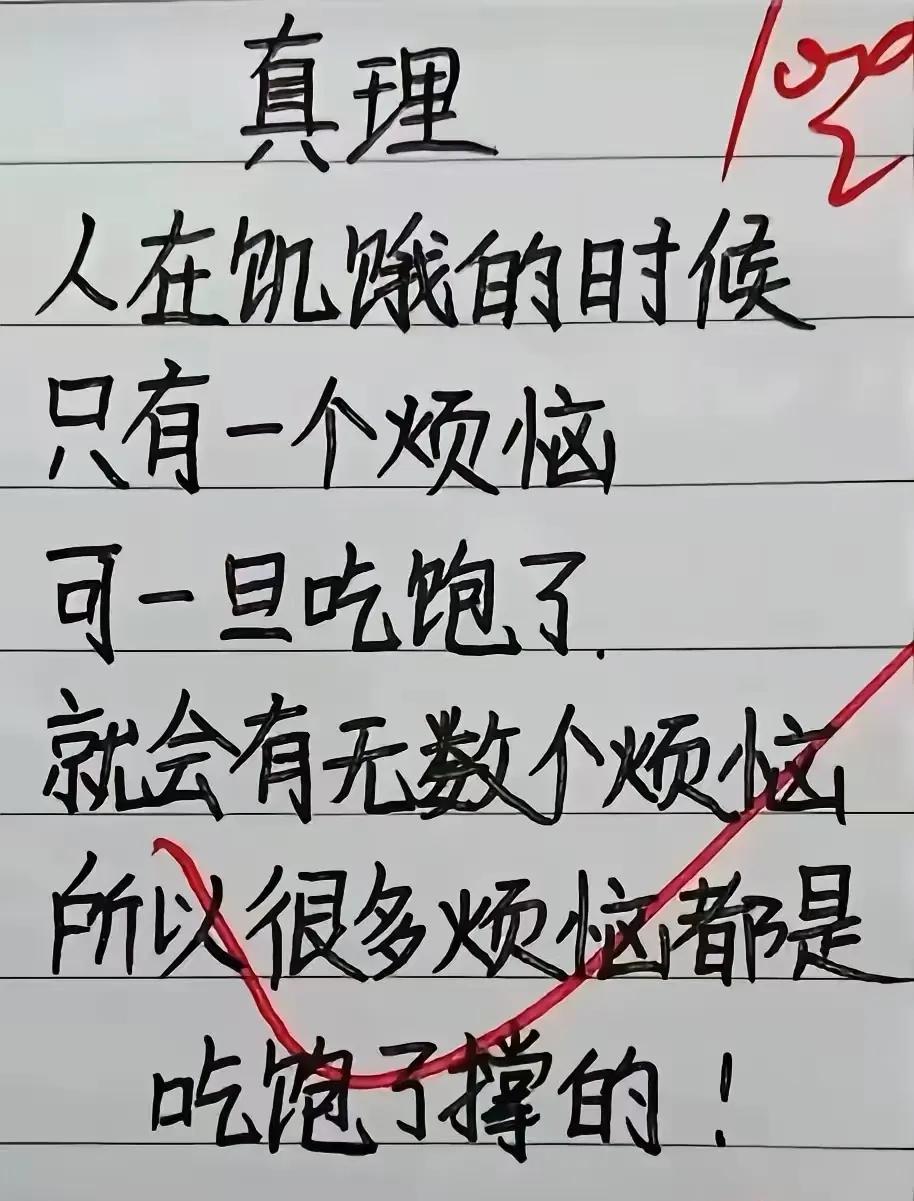 真理
100
人在饥饿的时候
只有一个烦恼
可一旦吃饱了.
就会有无数个烦恼
所以很多烦恼都是
吃饱了撑的!